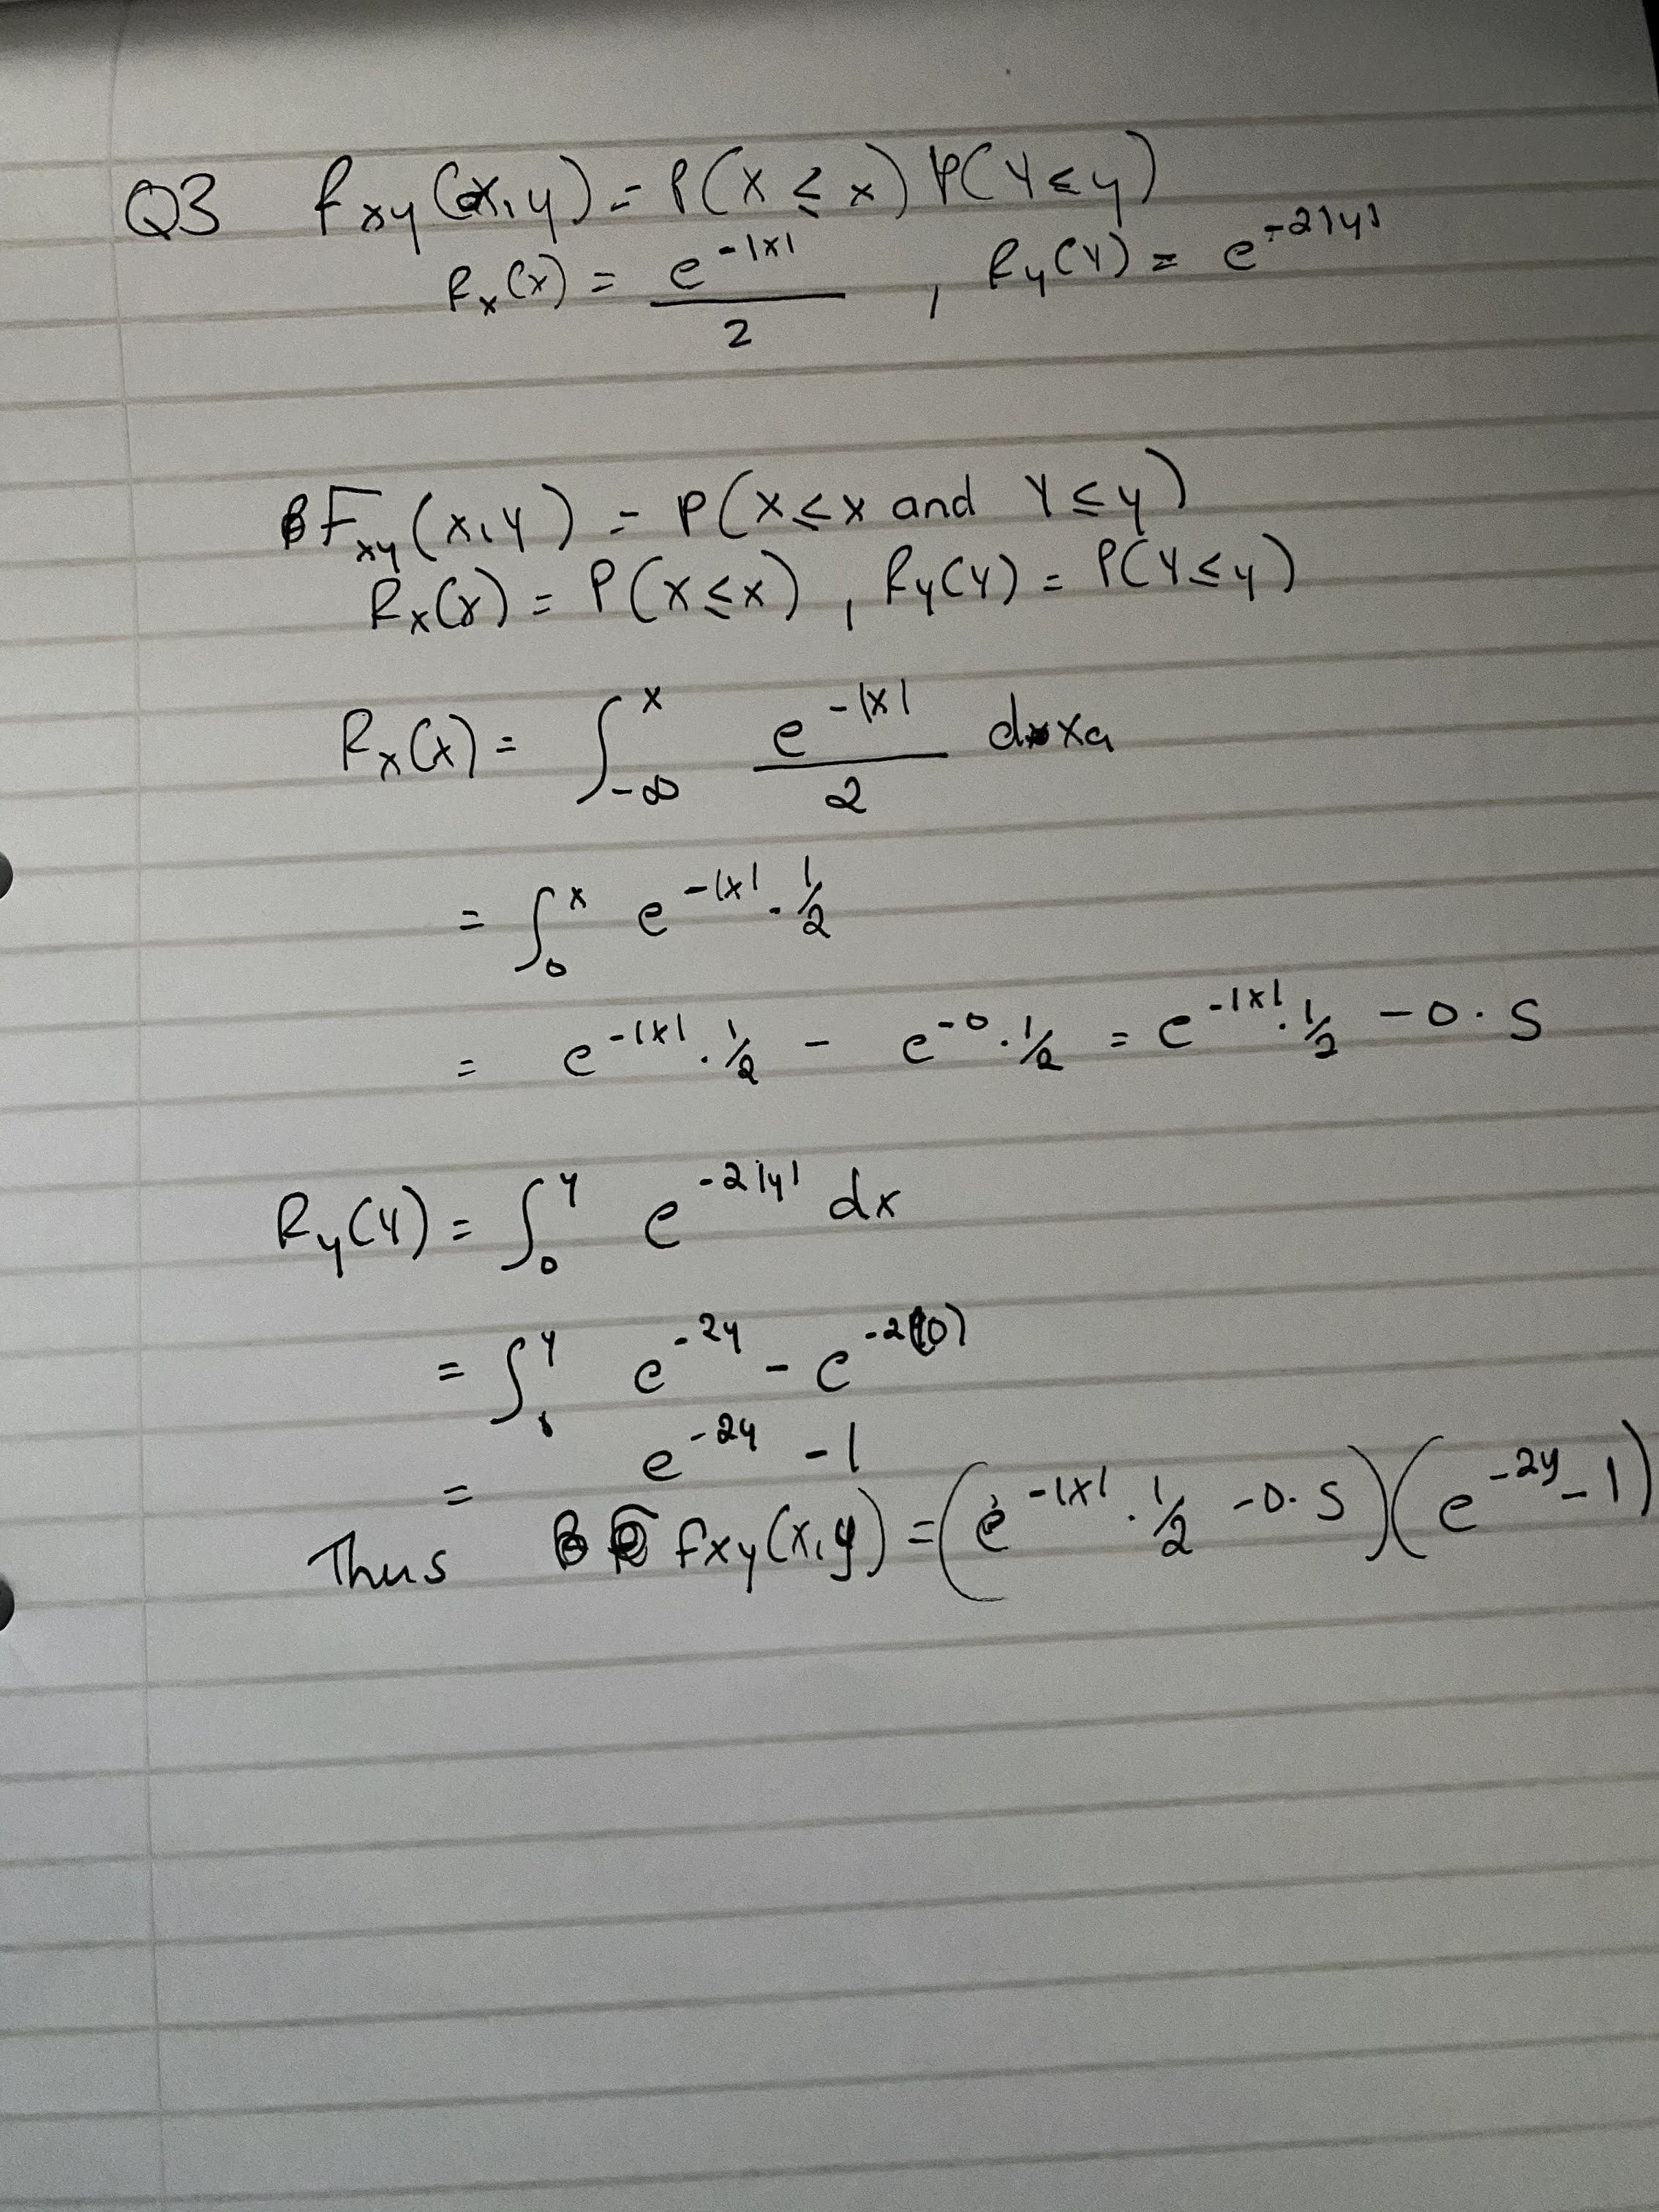 Q3 f_xy(x,y) = P(X ≤ x) P(Y ≤ y)
f_x(x) = e^-|x| / 2 , f_y(y) = e^-2|y|
F_xy(x,y) = P(X ≤ x and Y ≤ y)
f_x(x) = P(X ≤ x) , f_y(y) = P(Y ≤ y)
f_x(x) = ∫_-∞^x e^-|x| / 2 dx
= ∫_0^x e^-|x| . 1/2
= e^-|x| . 1/2 - e^-0 . 1/2 = e^-|x| . 1/2 - 0.5
f_y(y) = ∫_0^y e^-2|y| dx
= ∫_0^y e^-2y - e^-2(0)
= e^-2y - 1
Thus f_xy(x,y) = (e^-|x| . 1/2 - 0.5)(e^-2y - 1)